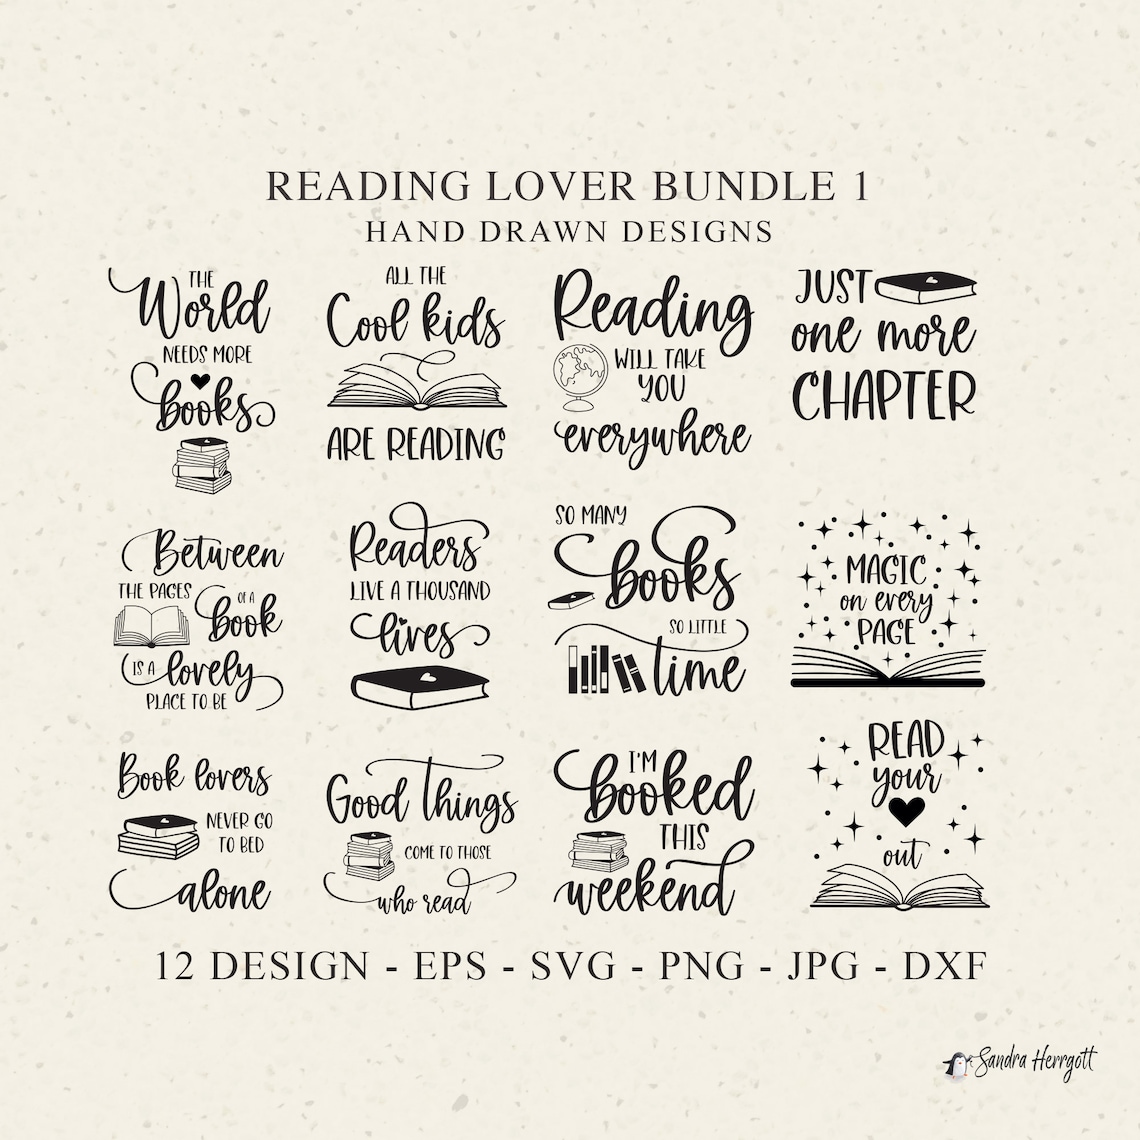 READING LOVER BUNDLE 1
HAND DRAWN DESIGNS
THE
World
NEEDS MORE
books
ALL THE
Cool kids
ARE READING
Reading
WILL TAKE
YOU
everywhere
JUST
one more
CHAPTER
Between
THE PAGES
OF A
book
IS A lovely
PLACE TO BE
Readers
LIVE A THOUSAND
lives
SO MANY
books
SO LITTLE
time
MAGIC
on every
PAGE
Book lovers
NEVER GO
TO BED
alone
Good things
COME TO THOSE
who read
I'M
booked
THIS
weekend
READ
your
out
12 DESIGN - EPS - SVG - PNG - JPG - DXF
Sandra Herrgott